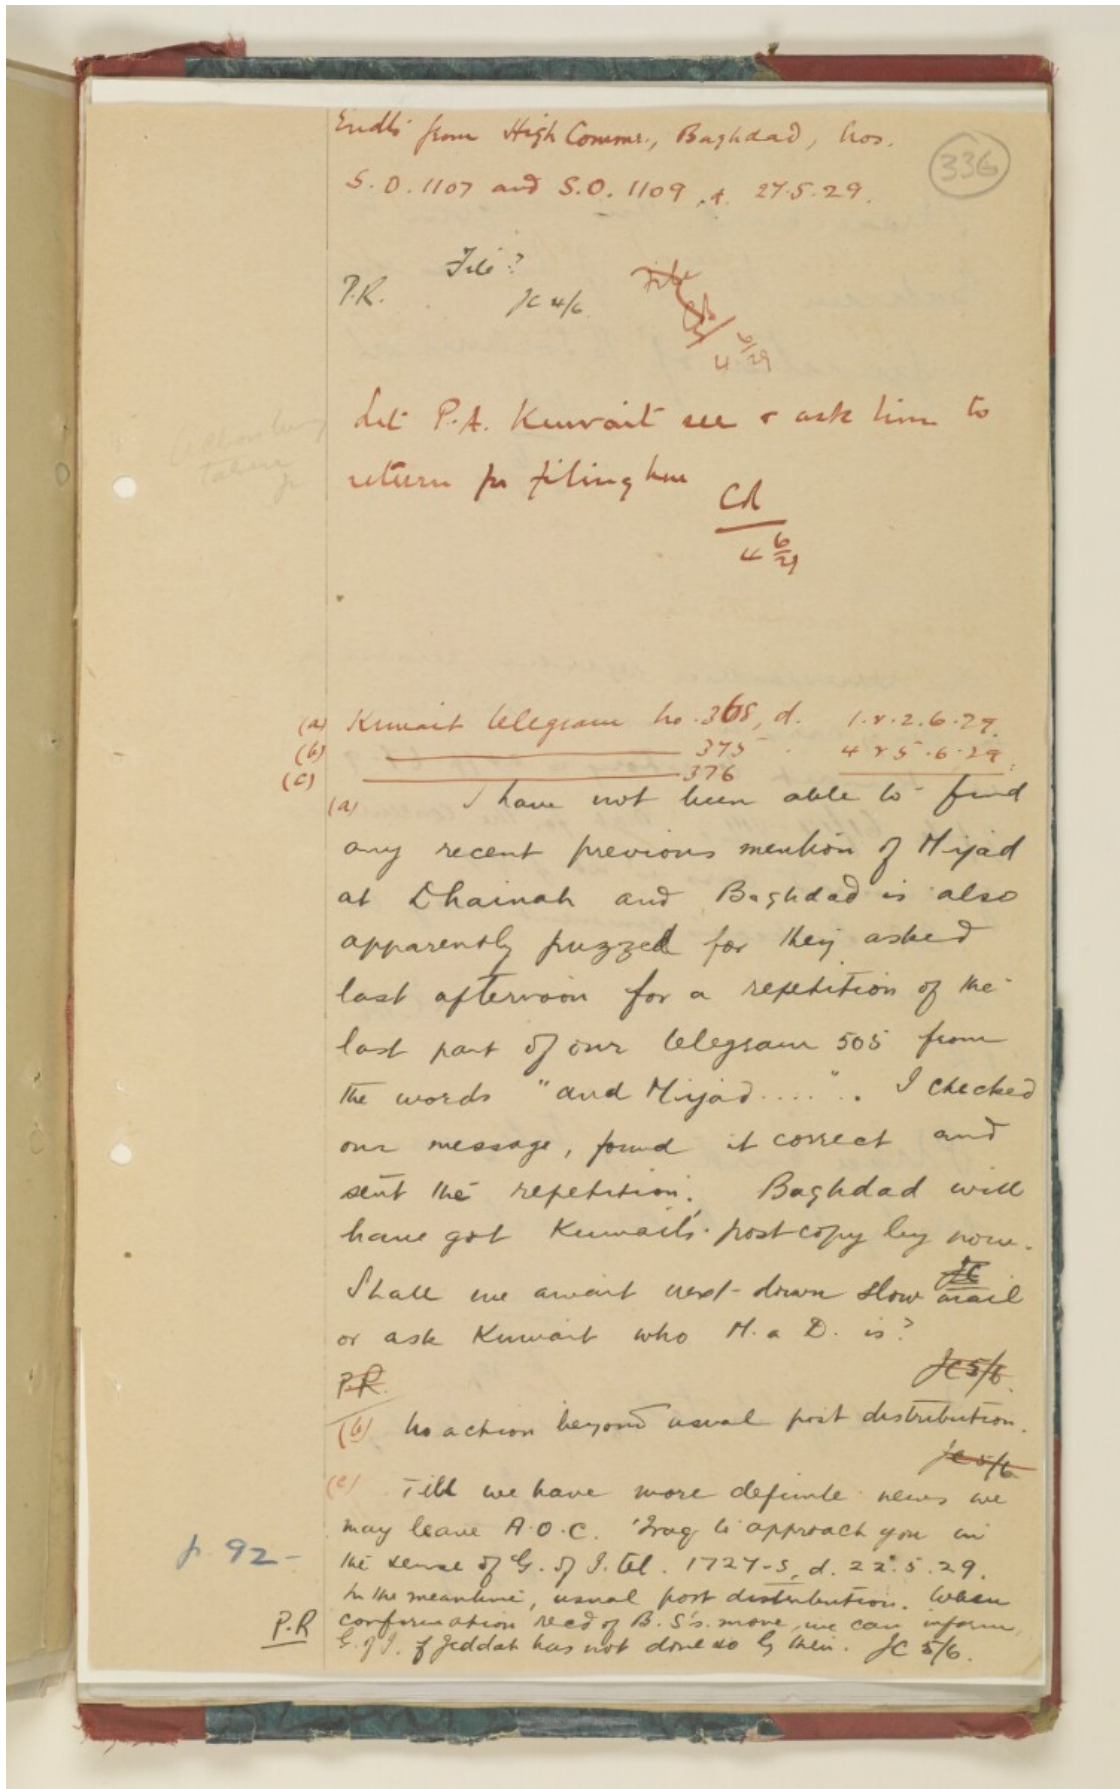 336
Endts from High Commr., Baghdad, Nos.
S.O. 1107 and S.O. 1109, d. 27.5.29.
File?
P.R. JC 4/6
File
4 6/29
Let P.A. Kuwait see & ask him to
return for filing here
CR
4 6/29
taken
(a) Kuwait telegram No. 368, d. 1.&.2.6.29.
(b) ——— 375 4 & 5.6.29.
(c) ——— 376
(a) I have not been able to find
any recent previous mention of Mijad
at Dhainah and Baghdad is also
apparently puzzed for they asked
last afternoon for a repetition of the
last part of our telegram 505 from
the words "and Mijad.....". I checked
our message, found it correct and
sent the repetition. Baghdad will
have got Kuwait's post copy by now.
JC
Shall we await next down slow mail
or ask Kuwait who M. a D. is?
JC 5/6.
P.R.
(b) No action beyond usual post distribution.
JC 5/6
(c) Till we have more definite news we
may leave A.O.C. 'Iraq to approach you in
p. 92 - the sense of G. of I. tel. 1727-S, d. 22.5.29.
In the meantime, usual post distribution. When
P.R confirmation recd of B. S's. move, we can inform
G. of I. if Jeddah has not done so by then. JC 5/6.